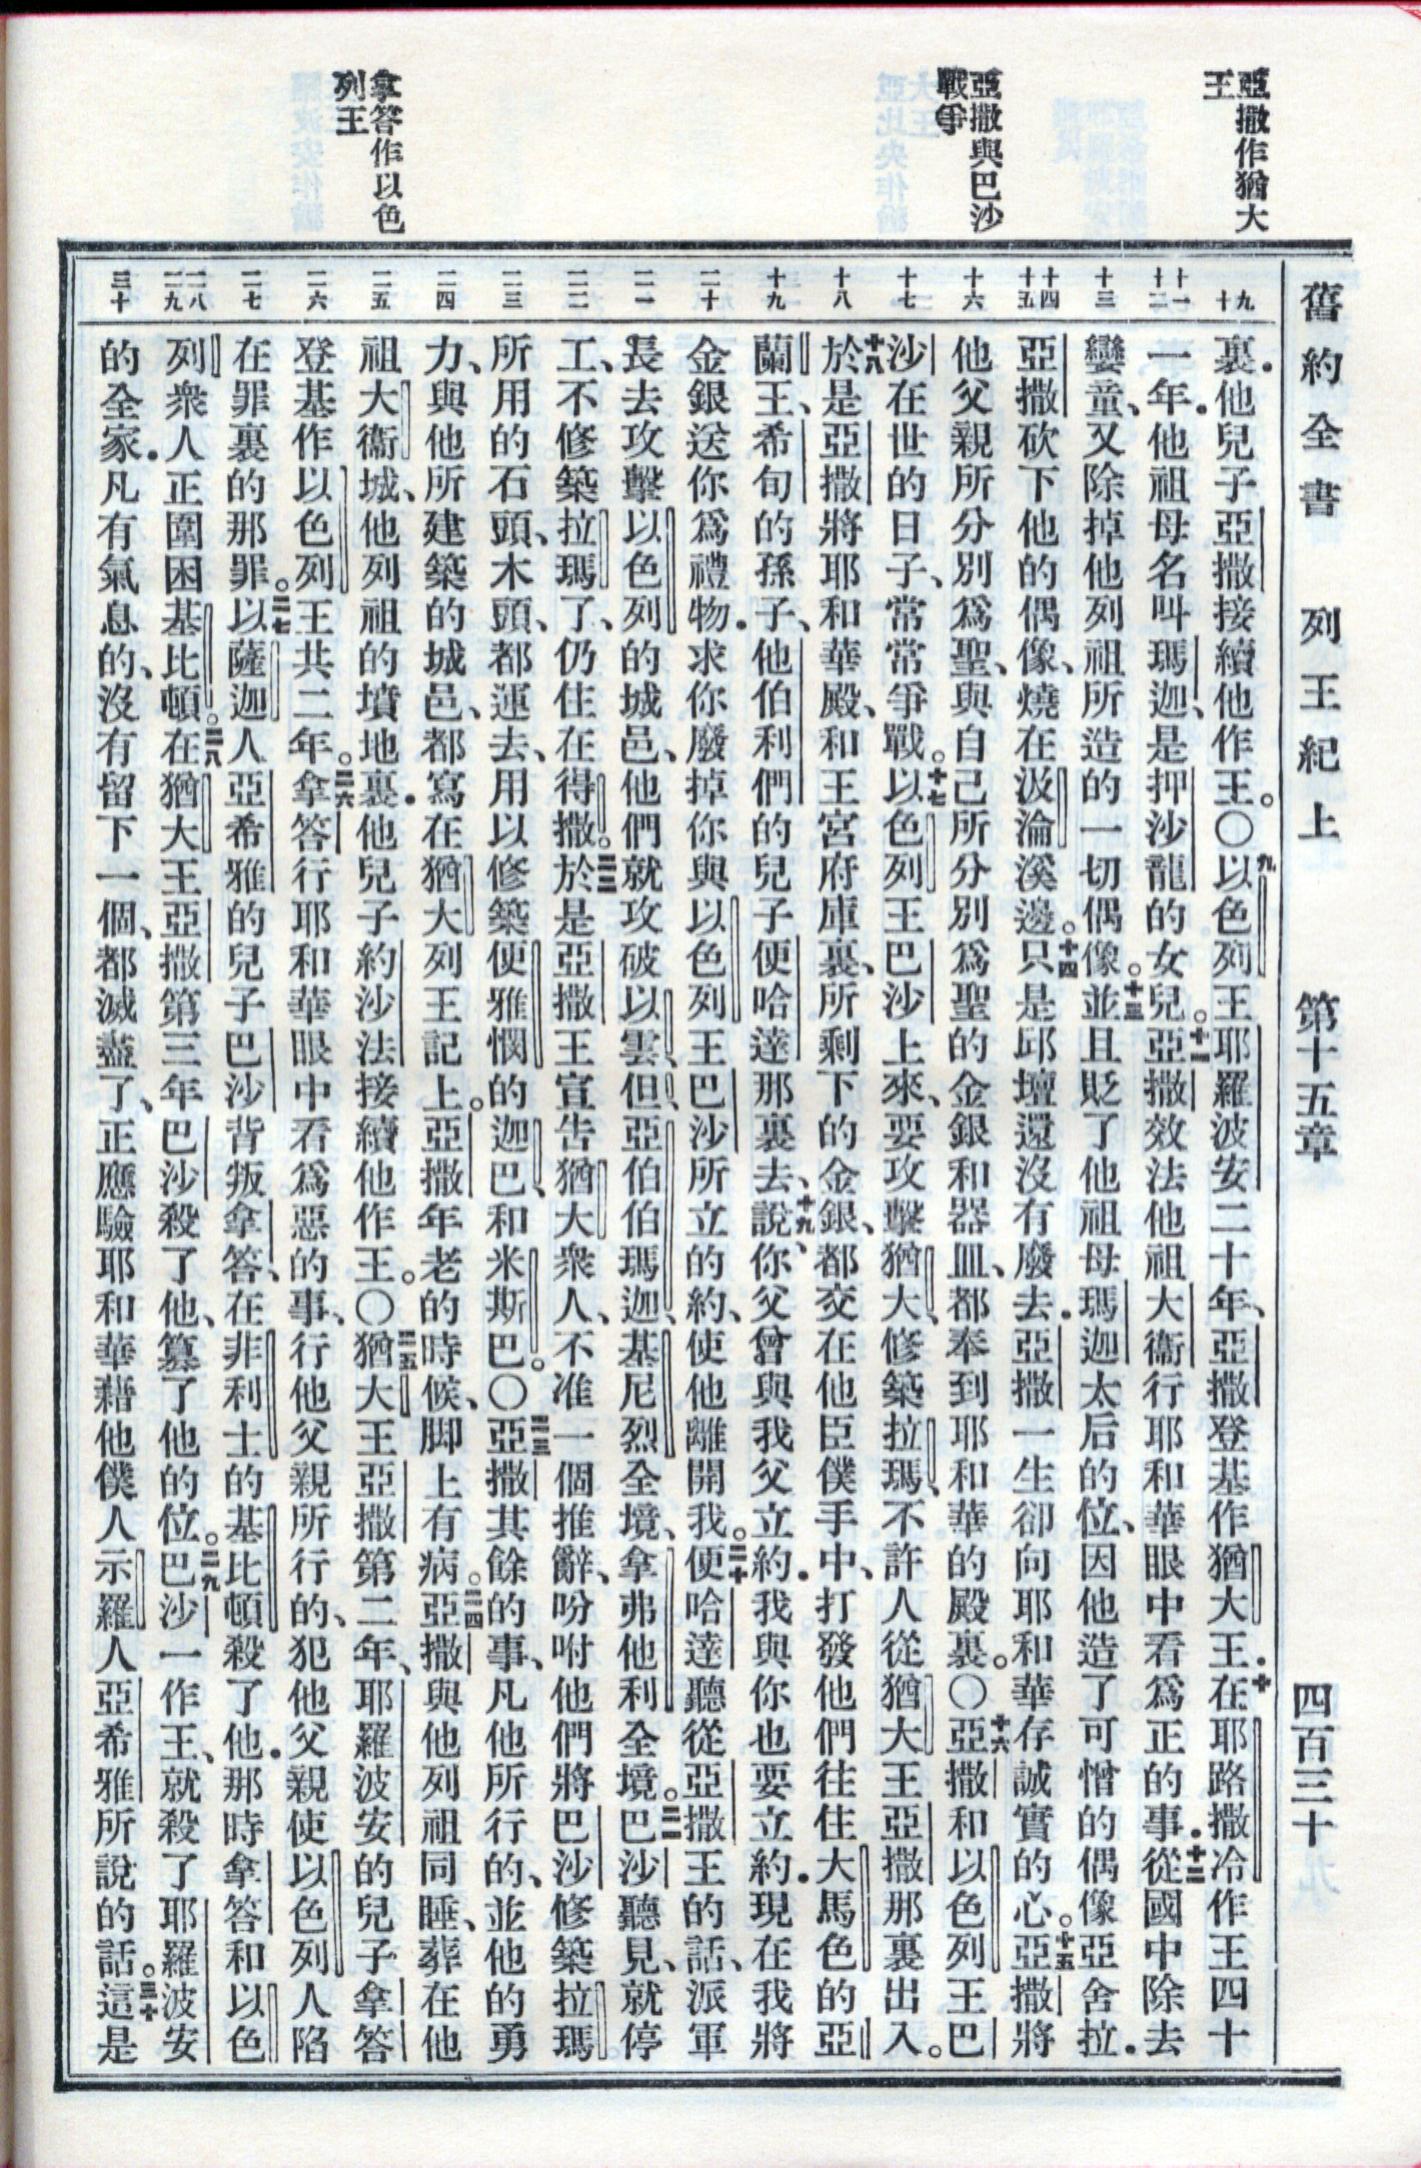 舊約全書　列王紀上　第十五章　四百三十
亞撒作猶大
王
亞撒與巴沙
戰爭
拿答作以色
列王
九
十
十一
十二
十三
十四
十五
十六
十七
十八
十九
二十
二一
二二
二三
二四
二五
二六
二七
二八
二九
三十
裏．他兒子亞撒接續他作王。〇九以色列王耶羅波安二十年、亞撒登基作猶大王．十在耶路撒冷作王四十
一年．他祖母名叫瑪迦、是押沙龍的女兒。十一亞撒效法他祖大衞行耶和華眼中看爲正的事．十二從國中除去
孌童、又除掉他列祖所造的一切偶像。十三並且貶了他祖母瑪迦太后的位、因他造了可憎的偶像亞舍拉．
亞撒砍下他的偶像、燒在汲淪溪邊。十四只是邱壇還沒有廢去．亞撒一生卻向耶和華存誠實的心。十五亞撒將
他父親所分別爲聖、與自己所分別爲聖的金銀和器皿、都奉到耶和華的殿裏。〇十六亞撒和以色列王巴
沙在世的日子、常常爭戰。十七以色列王巴沙上來、要攻擊猶大、修築拉瑪、不許人從猶大王亞撒那裏出入。
十八於是亞撒將耶和華殿、和王宮府庫裏、所剩下的金銀、都交在他臣僕手中、打發他們往住大馬色的亞
蘭王、希旬的孫子、他伯利們的兒子便哈達那裏去、十九說、你父曾與我父立約．我與你也要立約．現在我將
金銀送你爲禮物．求你廢掉你與以色列王巴沙所立的約、使他離開我。二十便哈達聽從亞撒王的話、派軍
長去攻擊以色列的城邑、他們就攻破以雲、但、亞伯伯瑪迦、基尼烈全境、拿弗他利全境。二一巴沙聽見、就停
工、不修築拉瑪了、仍住在得撒。二二於是亞撒王宣告猶大衆人、不准一個推辭、吩咐他們將巴沙修築拉瑪
所用的石頭、木頭、都運去、用以修築便雅憫的迦巴、和米斯巴。〇二三亞撒其餘的事、凡他所行的、並他的勇
力、與他所建築的城邑、都寫在猶大列王記上。亞撒年老的時候、脚上有病。二四亞撒與他列祖同睡、葬在他
祖大衞城、他列祖的墳地裏．他兒子約沙法接續他作王。〇二五猶大王亞撒第二年、耶羅波安的兒子拿答
登基作以色列王共二年。二六拿答行耶和華眼中看爲惡的事、行他父親所行的、犯他父親使以色列人陷
在罪裏的那罪。二七以薩迦人亞希雅的兒子巴沙背叛拿答、在非利士的基比頓殺了他．那時拿答和以色
列衆人正圍困基比頓。二八在猶大王亞撒第三年巴沙殺了他、篡了他的位。二九巴沙一作王、就殺了耶羅波安
的全家．凡有氣息的、沒有留下一個、都滅盡了、正應驗耶和華藉他僕人示羅人亞希雅所說的話。三十這是